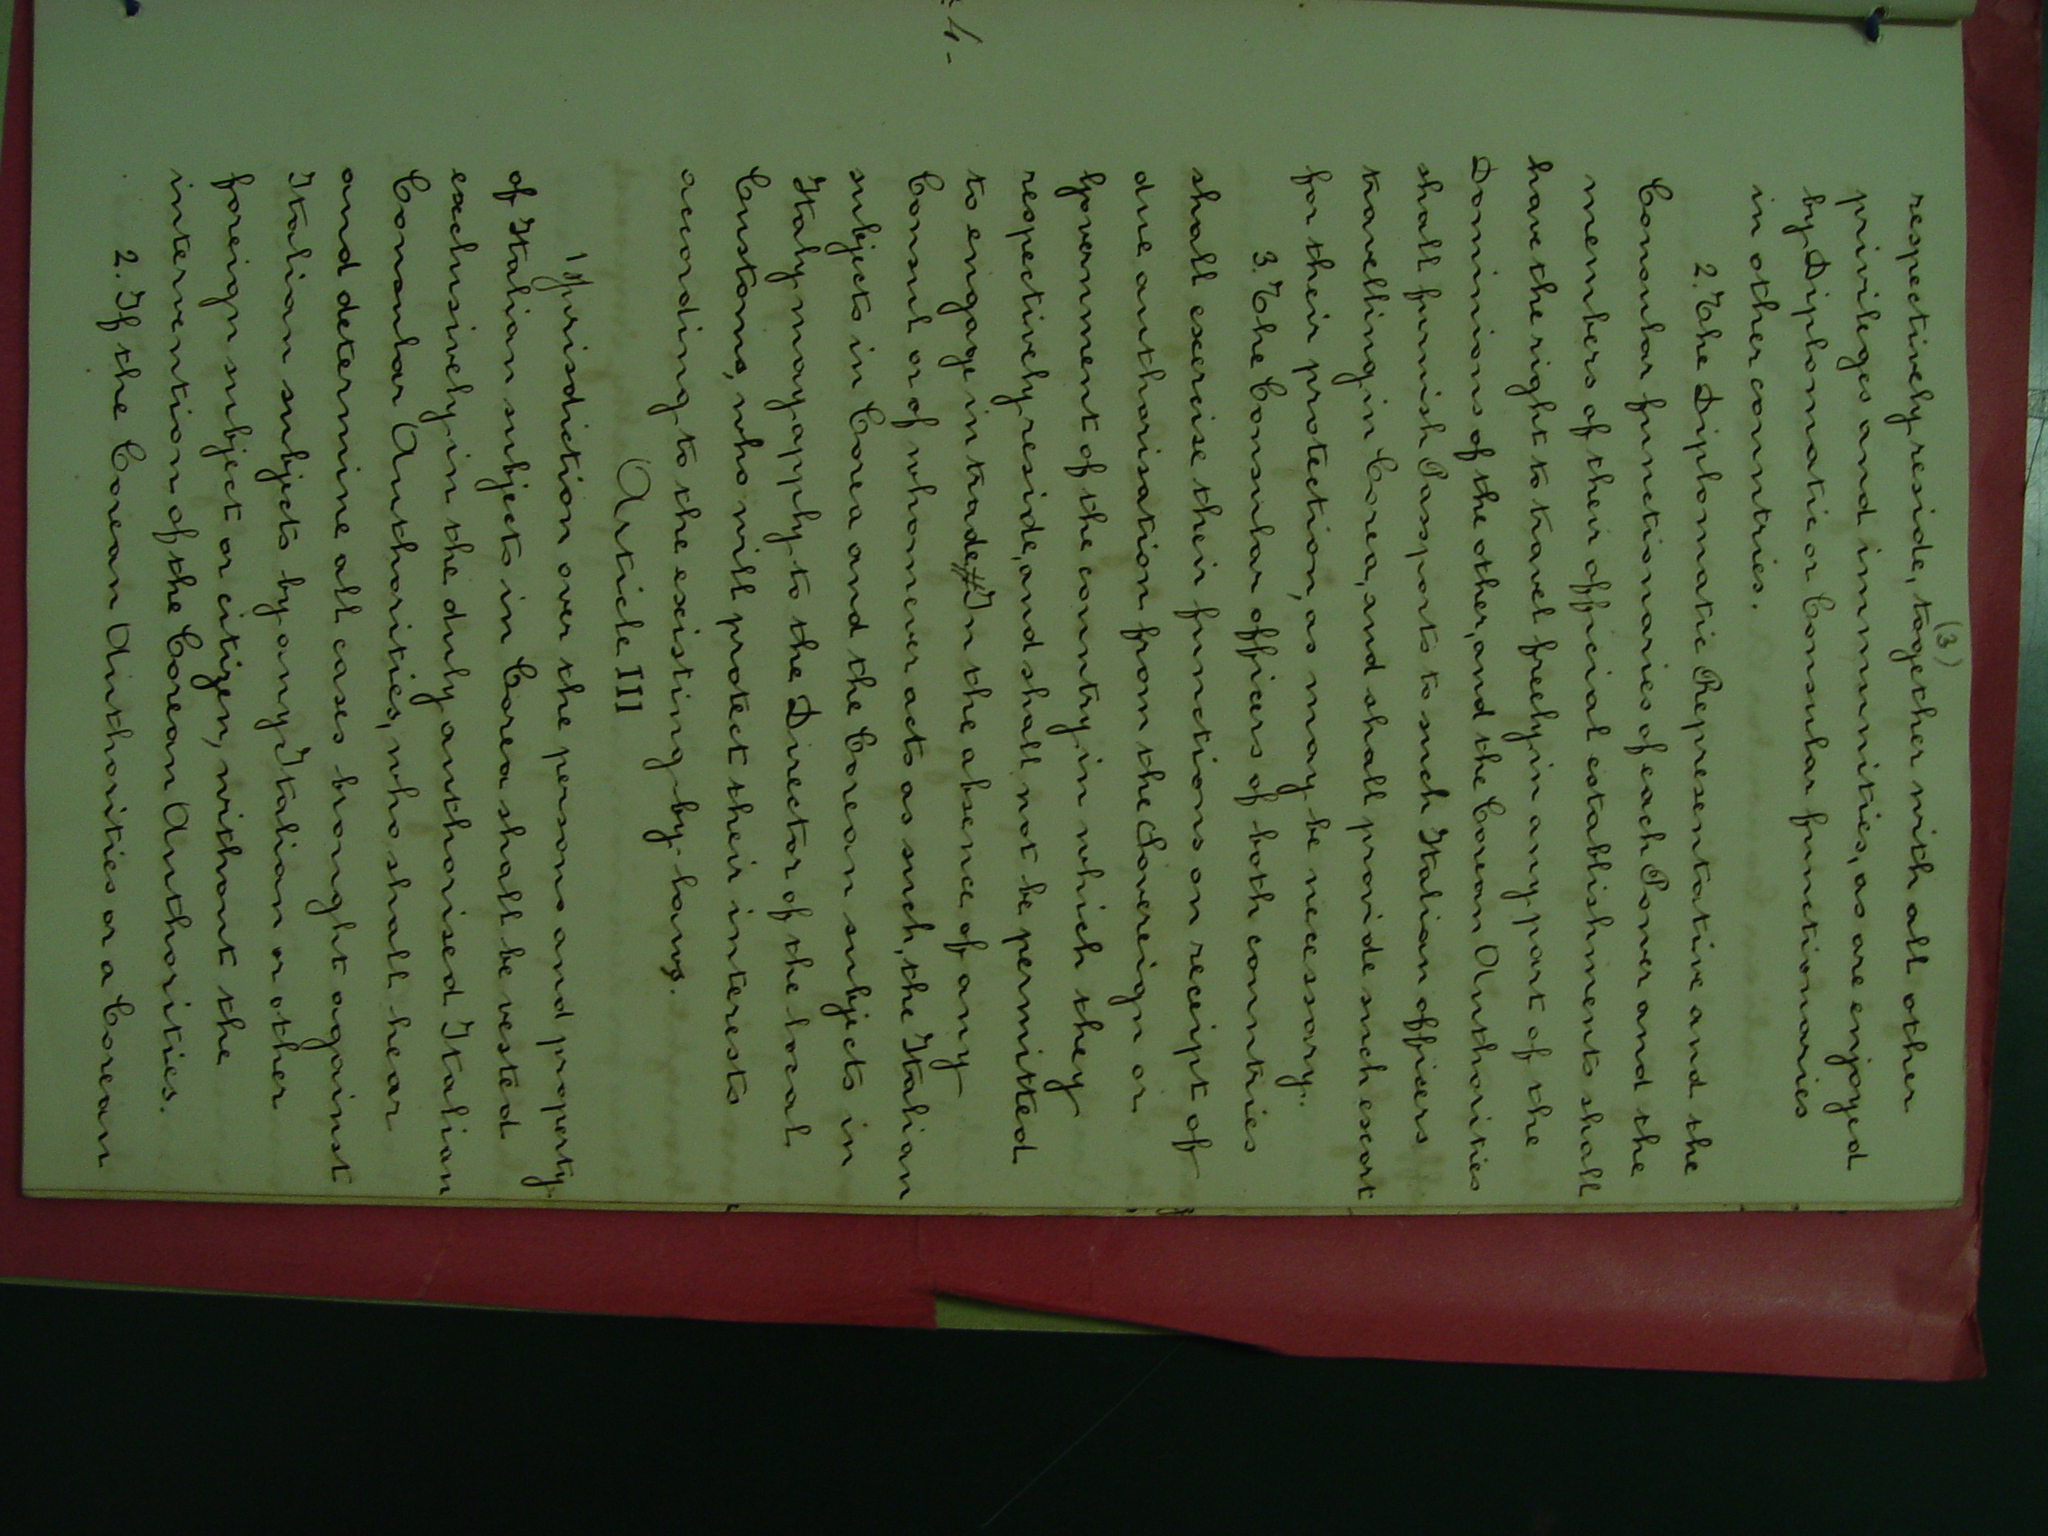 (3)
respectively reside, together with all other
privileges and immunities, as are enjoyed
by Diplomatic or Consular functionaries
in other countries.
2. The Diplomatic Representative and the
Consular functionaries of each Power and the
members of their official establishments shall
have the right to travel freely in any part of the
Dominions of the other, and the Corean Authorities
shall furnish Passports to such Italian officers
travelling in Corea, and shall provide such escort
for their protection, as may be necessary.
3. The Consular officers of both countries
shall exercise their functions on receipt of
due authorisation from the Sovereign or
Government of the country in which they
respectively reside, and shall not be permitted
to engage in trade. In the absence of any
Consul or of whomever acts as such, the Italian
subjects in Corea and the Corean subjects in
Italy may apply to the Director of the local
Customs, who will protect their interests
according to the existing by-laws.
Article III
1. Jurisdiction over the persons and property
of Italian subjects in Corea shall be vested
exclusively in the duly authorised Italian
Consular Authorities, who shall hear
and determine all cases brought against
Italian subjects by any Italian or other
foreign subject or citizen, without the
intervention of the Corean Authorities.
2. If the Corean Authorities or a Corean